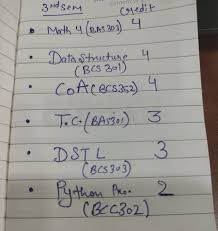 3rd Sem Credit
• Math 4 (BAS303) 4
• Data structure 4
(BCS301)
• COA (BCS302) 4
• T.C. (BAS301) 3
• DSTL 3
(BCS303)
• Python Pro. 2
(BCC302)